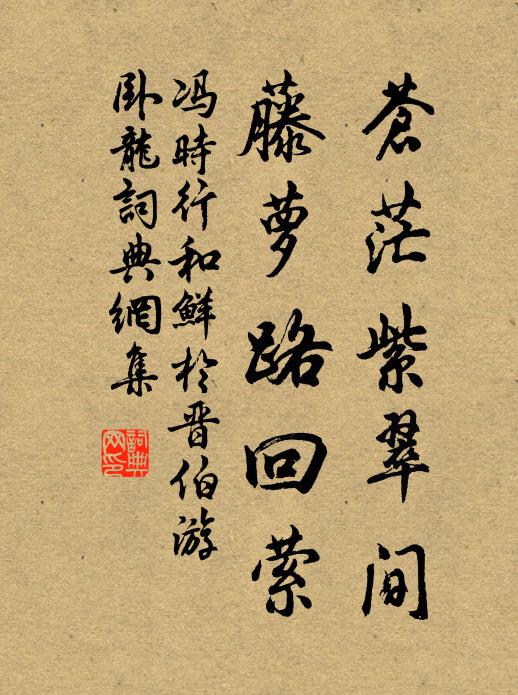 蒼茫紫翠间
藤萝路回萦
冯時行和鮮於晋伯游
卧龍詞典網集
詞典网印